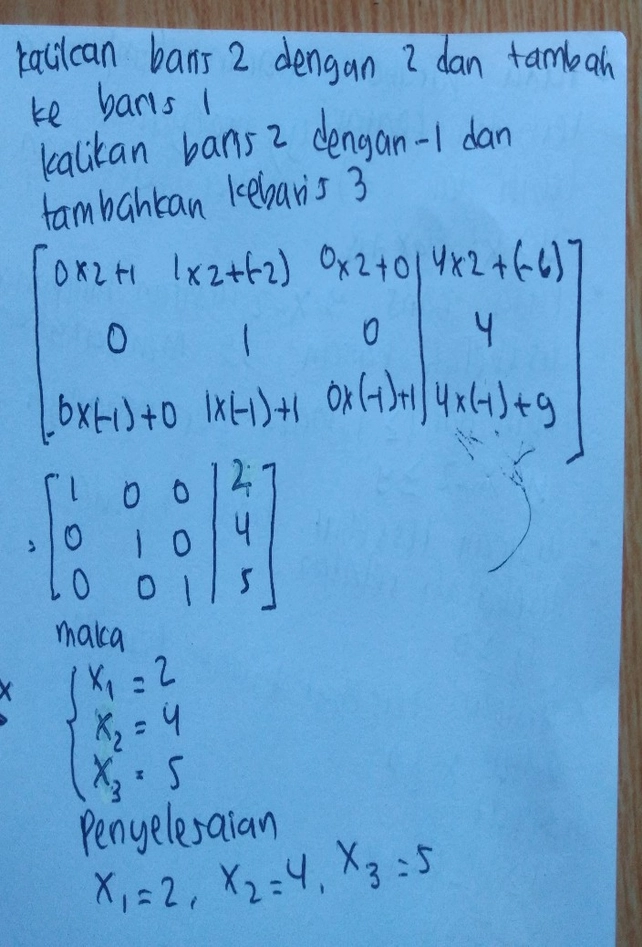 kalikan baris 2 dengan 2 dan tambah
ke baris 1
kalikan baris 2 dengan -1 dan
tambahkan kebaris 3
[0x2+1 1x2+(-2) 0x2+0 | 4x2+(-6)]
[0 1 0 | 4]
[0x(-1)+0 1x(-1)+1 0x(-1)+1 | 4x(-1)+9]
[1 0 0 | 2]
[0 1 0 | 4]
[0 0 1 | 5]
maka
{ x₁ = 2
x₂ = 4
x₃ = 5
Penyelesaian
x₁=2, x₂=4, x₃=5